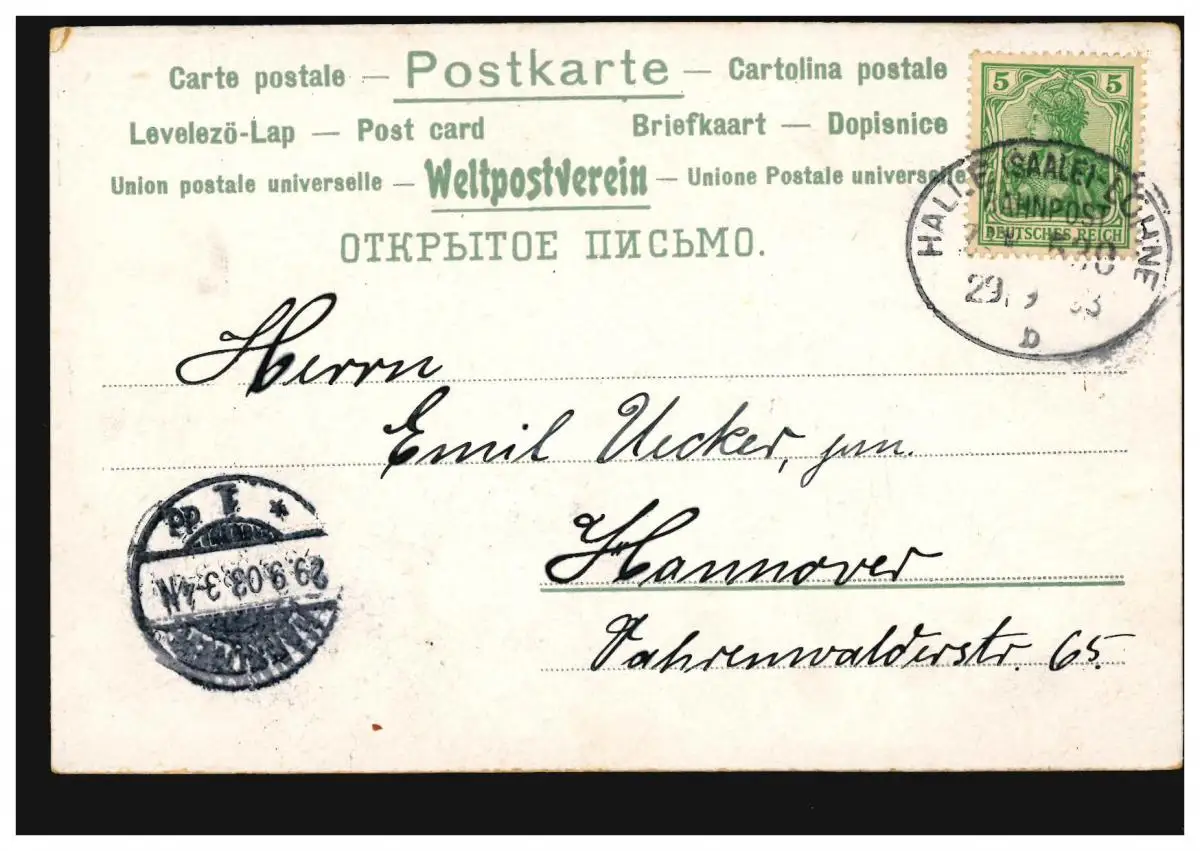 Carte postale — Postkarte — Cartolina postale
Levelező-Lap — Post card Briefkaart — Dopisnice
Union postale universelle — Weltpostverein — Unione Postale universelle
ОТКРЫТОЕ ПИСЬМО.
5 5
DEUTSCHES REICH
HALLE (SAALE)-LÖHNE
BAHNPOST
29 9 03
b
Herrn
Emil Uecker, jun.
Hannover
Vahrenwalderstr. 65.
* 1
29.9.03. 3-4N
HANNOVER